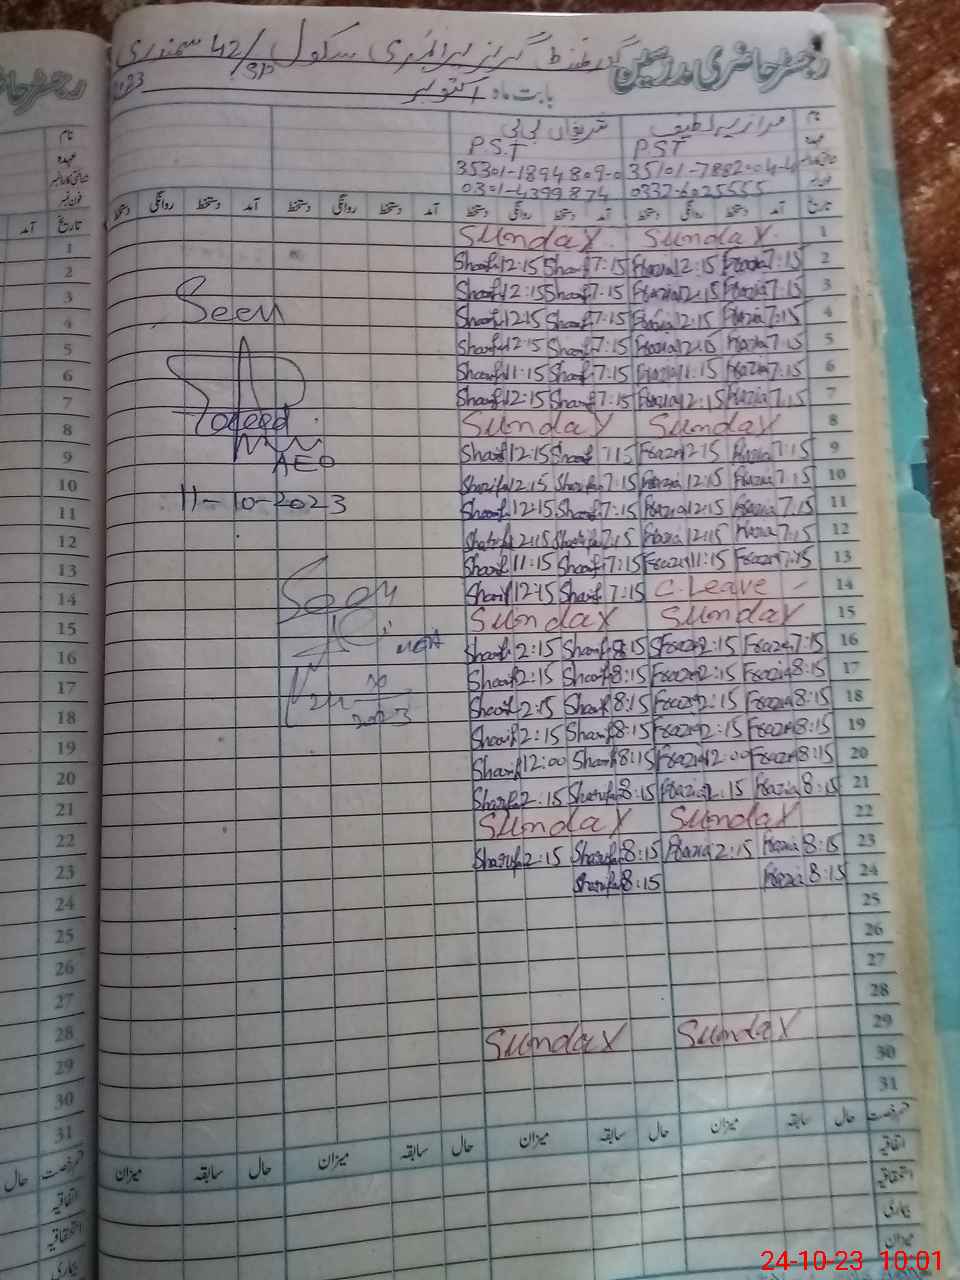 رجسٹر حاضری مدرسین گورنمنٹ گرلز پرائمری سکول 42/SP سمندری
بابت ماہ اکتوبر 2023
نام شریفاں بی بی
عہدہ P.S.T P.S.T
شناختی کارڈ نمبر 35101-7882004-4 35301-1894809-0
فون نمبر 0337-6025555 0301-4399874
تاریخ آمد دستخط روانگی دستخط آمد دستخط روانگی دستخط آمد دستخط روانگی دستخط آمد دستخط روانگی دستخط
Sunday Sunday 1
Sharif 12:15 Sharif 7:15 Frazia 12:15 Frazia 7:15 2
Sharif 12:15 Sharif 7:15 Frazia 12:15 Frazia 7:15 3
Sharif 12:15 Sharif 7:15 Frazia 12:15 Frazia 7:15 4
Sharif 12:15 Sharif 7:15 Frazia 12:15 Frazia 7:15 5
Sharif 11:15 Sharif 7:15 Frazia 11:15 Frazia 7:15 6
Sharif 12:15 Sharif 7:15 Frazia 12:15 Frazia 7:15 7
Sunday Sunday 8
Sharif 12:15 Sharif 7:15 Frazia 12:15 Frazia 7:15 9
Sharifa 12:15 Sharifa 7:15 Frazia 12:15 Frazia 7:15 10
Sharif 12:15 Sharif 7:15 Frazia 12:15 Frazia 7:15 11
Sharifa 12:15 Sharifa 7:15 Frazia 12:15 Frazia 7:15 12
Sharif 11:15 Sharif 7:15 Frazia 11:15 Frazia 7:15 13
Sharif 12:15 Sharif 7:15 C. Leave 14
Sunday Sunday 15
Sharif 2:15 Sharif 8:15 Frazia 2:15 Frazia 7:15 16
Sharif 2:15 Sharif 8:15 Frazia 2:15 Frazia 8:15 17
Sharif 2:15 Sharif 8:15 Frazia 2:15 Frazia 8:15 18
Sharif 2:15 Sharif 8:15 Frazia 2:15 Frazia 8:15 19
Sharif 12:00 Sharif 8:15 Frazia 12:00 Frazia 8:15 20
Sharifa 2:15 Sharifa 8:15 Frazia 2:15 Frazia 8:15 21
Sunday Sunday 22
Sharifa 2:15 Sharifa 8:15 Frazia 2:15 Frazia 8:15 23
Sharifa 8:15 Frazia 8:15 24
25
26
27
28
Sunday Sunday 29
30
31
Seen
AEO
11-10-2023
Seen
MEA
2023
قسم رخصت حال سابقہ میزان حال سابقہ میزان حال سابقہ میزان حال سابقہ میزان
اتفاقیہ
استحقاقیہ
بیماری
میزان
رجسٹر حا
نام
عہدہ
شناختی کارڈ نمبر
فون نمبر
تاریخ آمد
1
2
3
4
5
6
7
8
9
10
11
12
13
14
15
16
17
18
19
20
21
22
23
24
25
26
27
28
29
30
31
قسم رخصت حال
اتفاقیہ
استحقاقیہ
بیماری
24-10-23 10:01